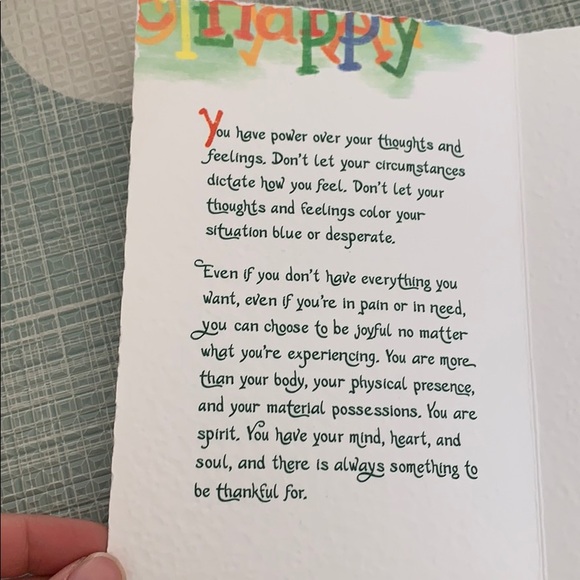 You have power over your thoughts and
feelings. Don't let your circumstances
dictate how you feel. Don't let your
thoughts and feelings color your
situation blue or desperate.
Even if you don't have everything you
want, even if you're in pain or in need,
you can choose to be joyful no matter
what you're experiencing. You are more
than your body, your physical presence,
and your material possessions. You are
spirit. You have your mind, heart, and
soul, and there is always something to
be thankful for.